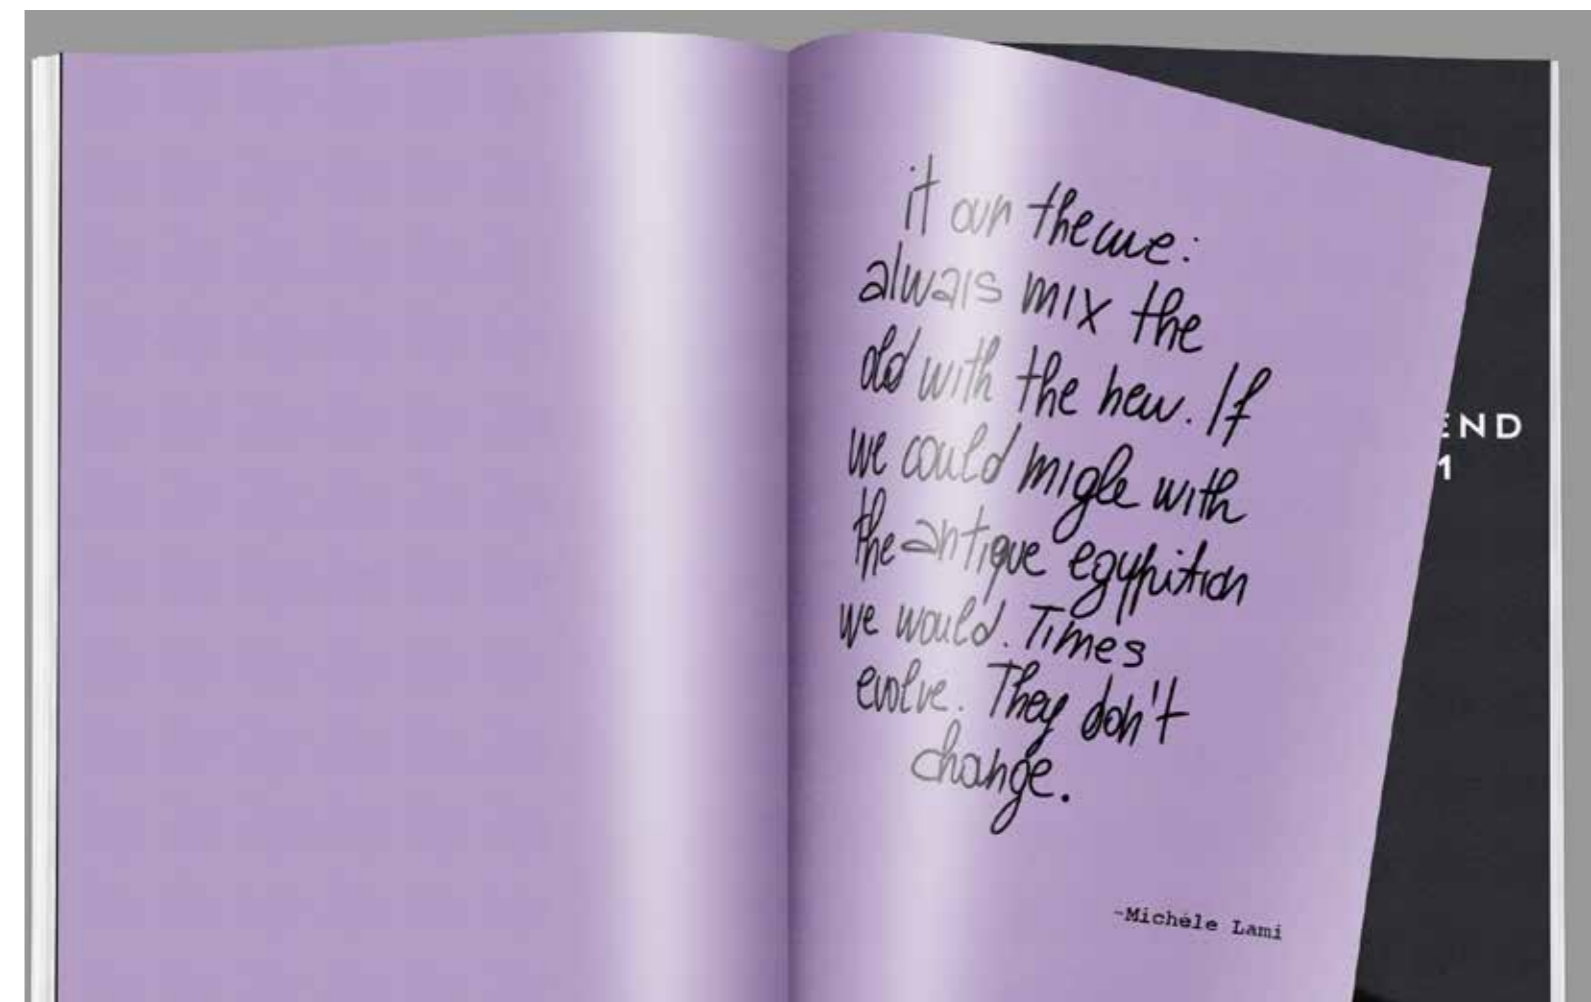 it our theme:
alwais mix the
old with the new. If
we could migle with
the antique egypition
we would. Times
evolve. They don't
change.
-Michéle Lami
END
1